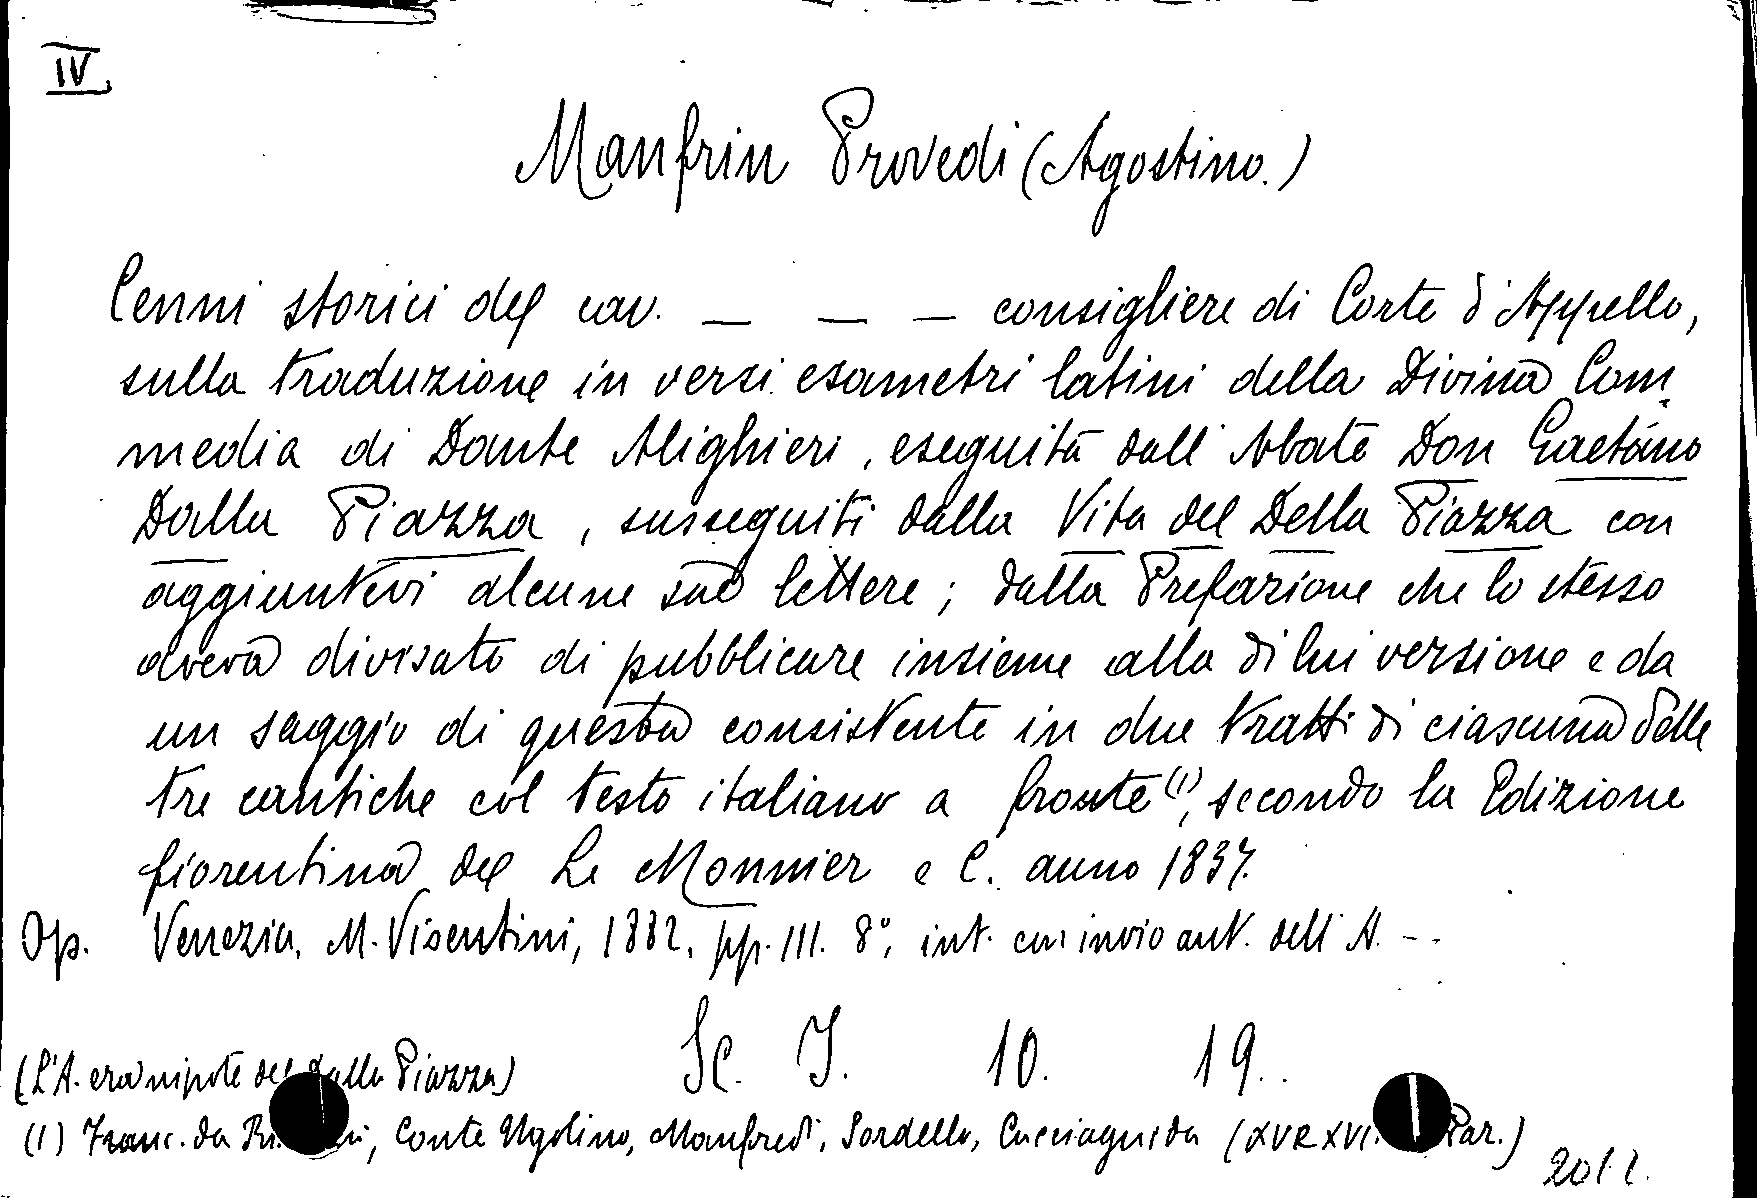 IV.
Manfrin Provedi (Agostino.)
Cenni storici del cav. — — — consigliere di Corte d'Appello,
sulla traduzione in versi esametri latini della Divina Com-
media di Dante Alighieri, eseguita dall'Abate Don Gaetano
Dalla Piazza, susseguiti dalla Vita del Della Piazza con
aggiuntevi alcune sue lettere; dalla Prefazione che lo stesso
aveva divisato di pubblicare insieme alla di lui versione e da
un saggio di questa consistente in due tratti di ciascuna delle
tre cantiche col testo italiano a fronte (1), secondo la Edizione
fiorentina del Le Monnier e C. anno 1837.
Op. Venezia, M. Visentini, 1882, pp. 111. 8°, int. con invio aut. dell'A. --
Sc. I. 10. 19.
(L'A. era nipote del Dalla Piazza)
(1) Franc. da, Conte Ugolino, Manfredi, Sordello, Cacciaguida (XV e XVI. Par.)